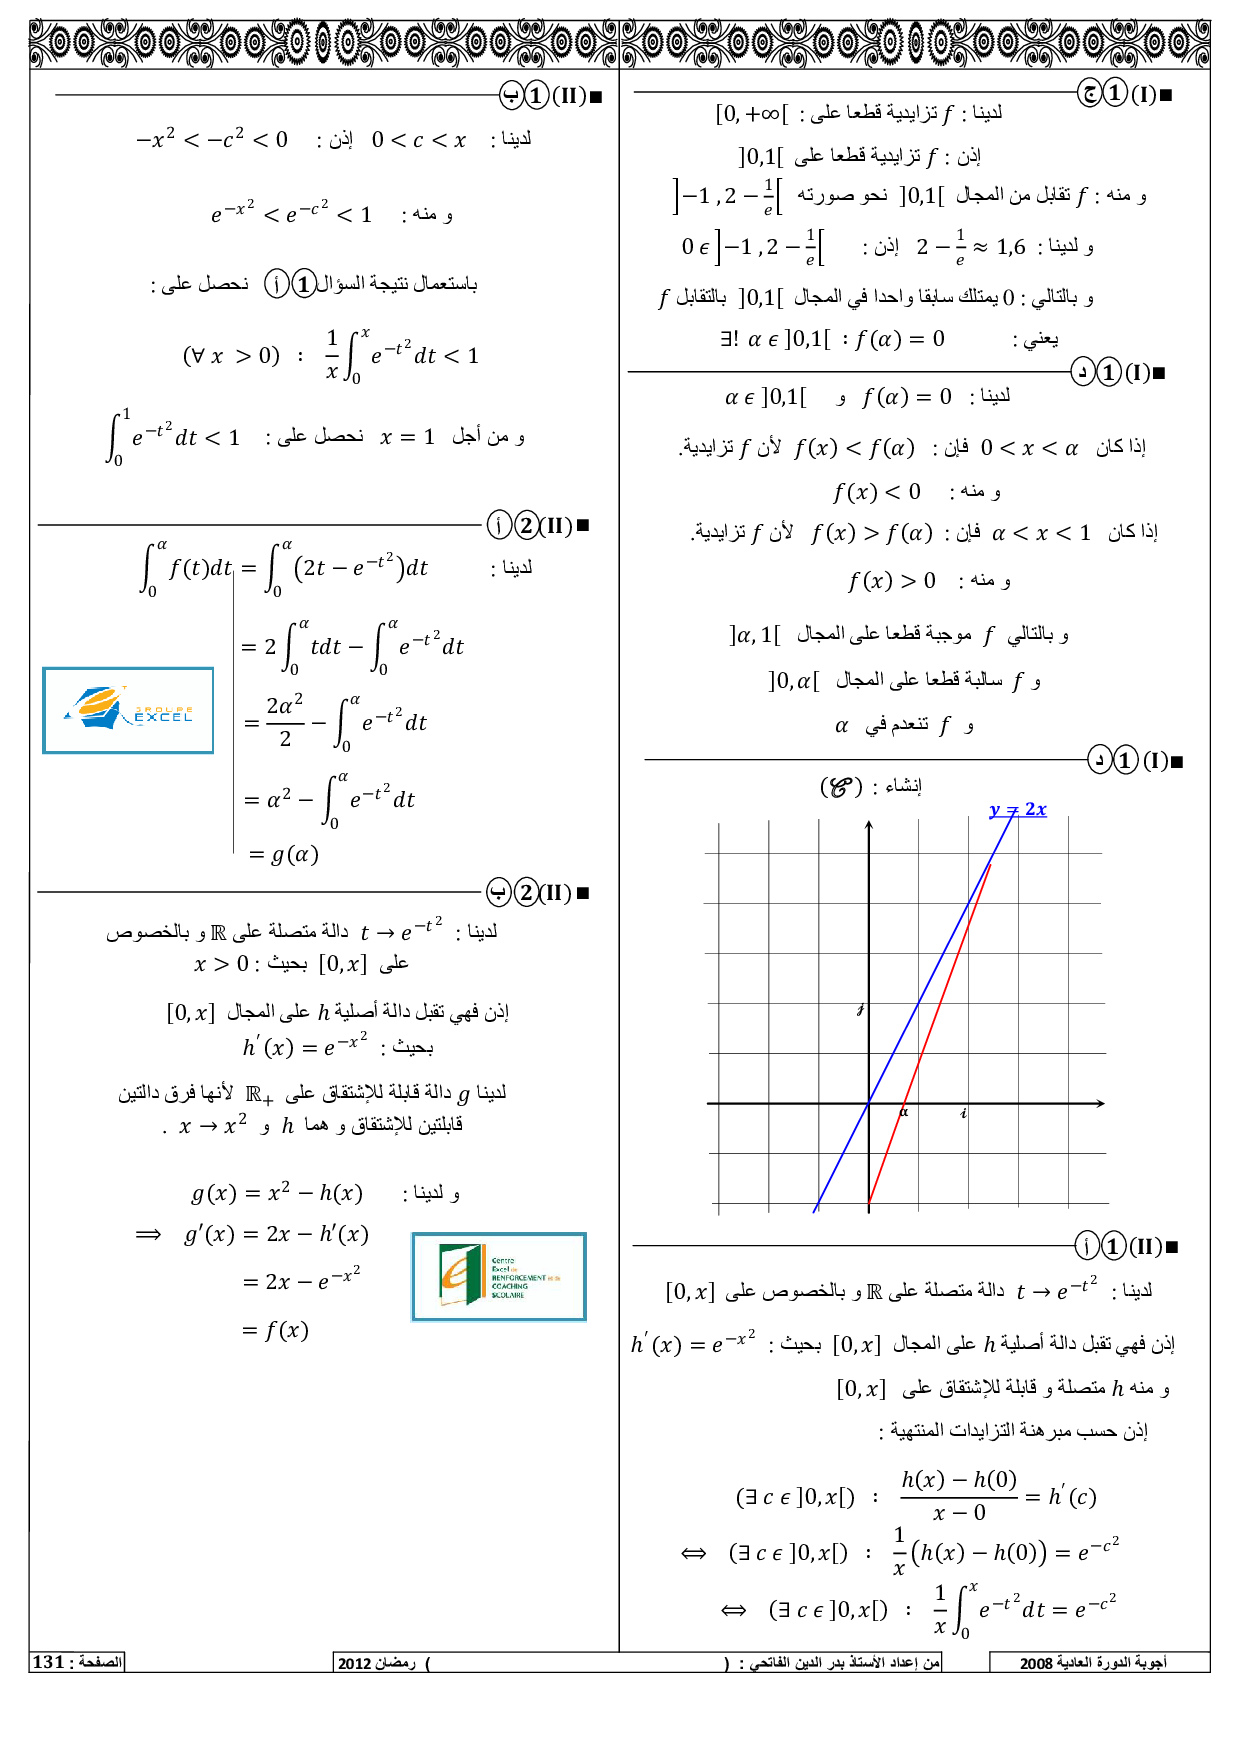 ■(I) 1 ج
لدينا : f تزايدية قطعا على : [0, +∞[
إذن : f تزايدية قطعا على ]0,1[
و منه : f تقابل من المجال ]0,1[ نحو صورته ]−1 , 2 − 1/e[
و لدينا : 2 − 1/e ≈ 1,6 إذن : 0 ϵ ]−1 , 2 − 1/e[
و بالتالي : 0 يمتلك سابقا واحدا في المجال ]0,1[ بالتقابل f
يعني : ∃! α ϵ ]0,1[ : f(α) = 0
■(I) 1 د
لدينا : f(α) = 0 و α ϵ ]0,1[
إذا كان 0 < x < α فإن : f(x) < f(α) لأن f تزايدية.
و منه : f(x) < 0
إذا كان α < x < 1 فإن : f(x) > f(α) لأن f تزايدية.
و منه : f(x) > 0
و بالتالي f موجبة قطعا على المجال ]α, 1[
و f سالبة قطعا على المجال ]0, α[
و f تنعدم في α
■(I) 1 د
إنشاء : (𝒞)
y = 2x
j
α i
■(II) 1 أ
لدينا : t → e^{−t²} دالة متصلة على ℝ و بالخصوص على [0, x]
إذن فهي تقبل دالة أصلية h على المجال [0, x] بحيث : h′(x) = e^{−x²}
و منه h متصلة و قابلة للإشتقاق على [0, x]
إذن حسب مبرهنة التزايدات المنتهية :
(∃ c ϵ ]0, x[) : (h(x) − h(0))/(x − 0) = h′(c)
⟺ (∃ c ϵ ]0, x[) : 1/x (h(x) − h(0)) = e^{−c²}
⟺ (∃ c ϵ ]0, x[) : 1/x ∫₀ˣ e^{−t²} dt = e^{−c²}
■(II) 1 ب
لدينا : 0 < c < x إذن : −x² < −c² < 0
و منه : e^{−x²} < e^{−c²} < 1
باستعمال نتيجة السؤال 1 أ نحصل على :
(∀ x > 0) : 1/x ∫₀ˣ e^{−t²} dt < 1
و من أجل x = 1 نحصل على : ∫₀¹ e^{−t²} dt < 1
■(II) 2 أ
لدينا : ∫₀^α f(t)dt = ∫₀^α (2t − e^{−t²})dt
= 2 ∫₀^α tdt − ∫₀^α e^{−t²} dt
= 2α²/2 − ∫₀^α e^{−t²} dt
GROUPE
EXCEL
= α² − ∫₀^α e^{−t²} dt
= g(α)
■(II) 2 ب
لدينا : t → e^{−t²} دالة متصلة على ℝ و بالخصوص
على [0, x] بحيث : x > 0
إذن فهي تقبل دالة أصلية h على المجال [0, x]
بحيث : h′(x) = e^{−x²}
لدينا g دالة قابلة للإشتقاق على ℝ₊ لأنها فرق دالتين
قابلتين للإشتقاق و هما h و x → x² .
و لدينا : g(x) = x² − h(x)
⟹ g′(x) = 2x − h′(x)
= 2x − e^{−x²}
= f(x)
Centre
Excel de
RENFORCEMENT et de
COACHING
SCOLAIRE
أجوبة الدورة العادية 2008
من إعداد الأستاذ بدر الدين الفاتحي : (
) رمضان 2012
الصفحة : 131